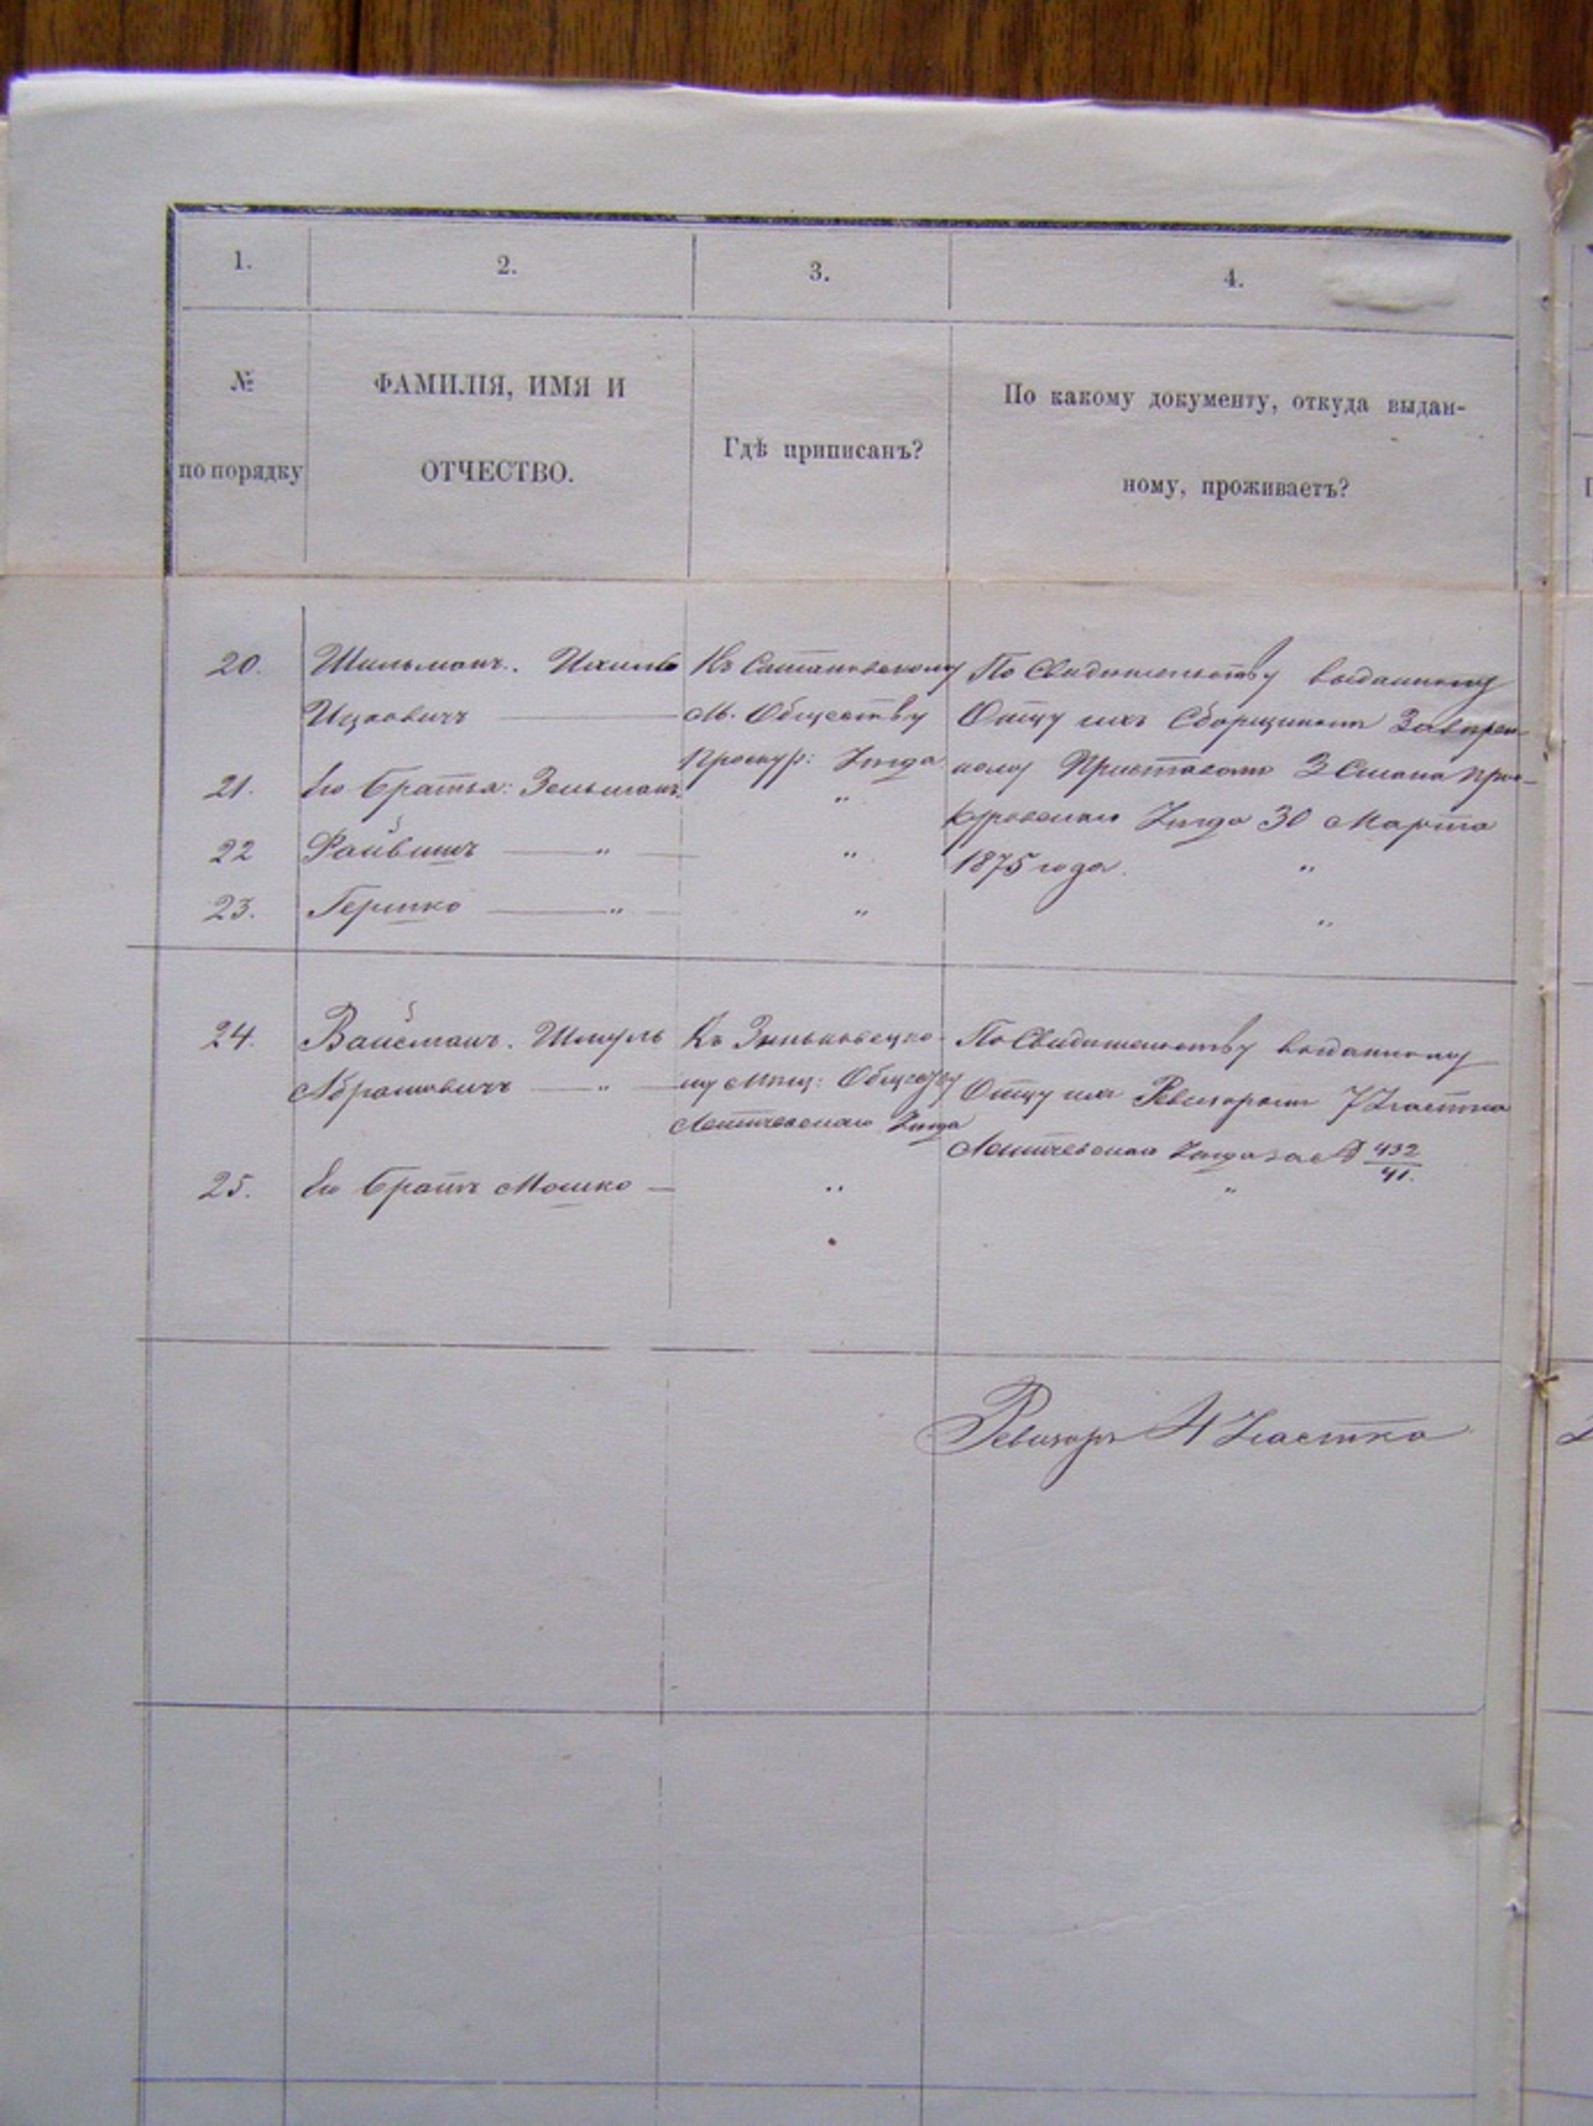 1. 2. 3. 4.
№ по порядку
ФАМИЛІЯ, ИМЯ И
ОТЧЕСТВО.
Гдѣ приписанъ?
По какому документу, откуда выдан-
ному, проживаетъ?
20. Шильманъ. Ихиль
Ицковичъ
Къ Сатановскому
М. Обществу
Проскур: Уѣзда
По Свидѣтельству выданному
Отцу ихъ Сборщикомъ
Приставомъ 3 Стана Прос-
куровскаго Уѣзда 30 Марта
1875 года. "
21. Его братья: Зельманъ. "
22 Файвишъ — " — "
23. Гершко — " — " "
24. Вайсманъ. Шмуль
Абрамовичъ — " —
Къ Зиньковецко-
му Мѣщ: Обществу
Летичевскаго Уѣзда
По Свидѣтельству выданному
Отцу ихъ Ревизоромъ 7 Участка
Летичевскаго Уѣзда за № 432/41.
25. Его братъ Мошко — " "
Ревизоръ 4 Участка